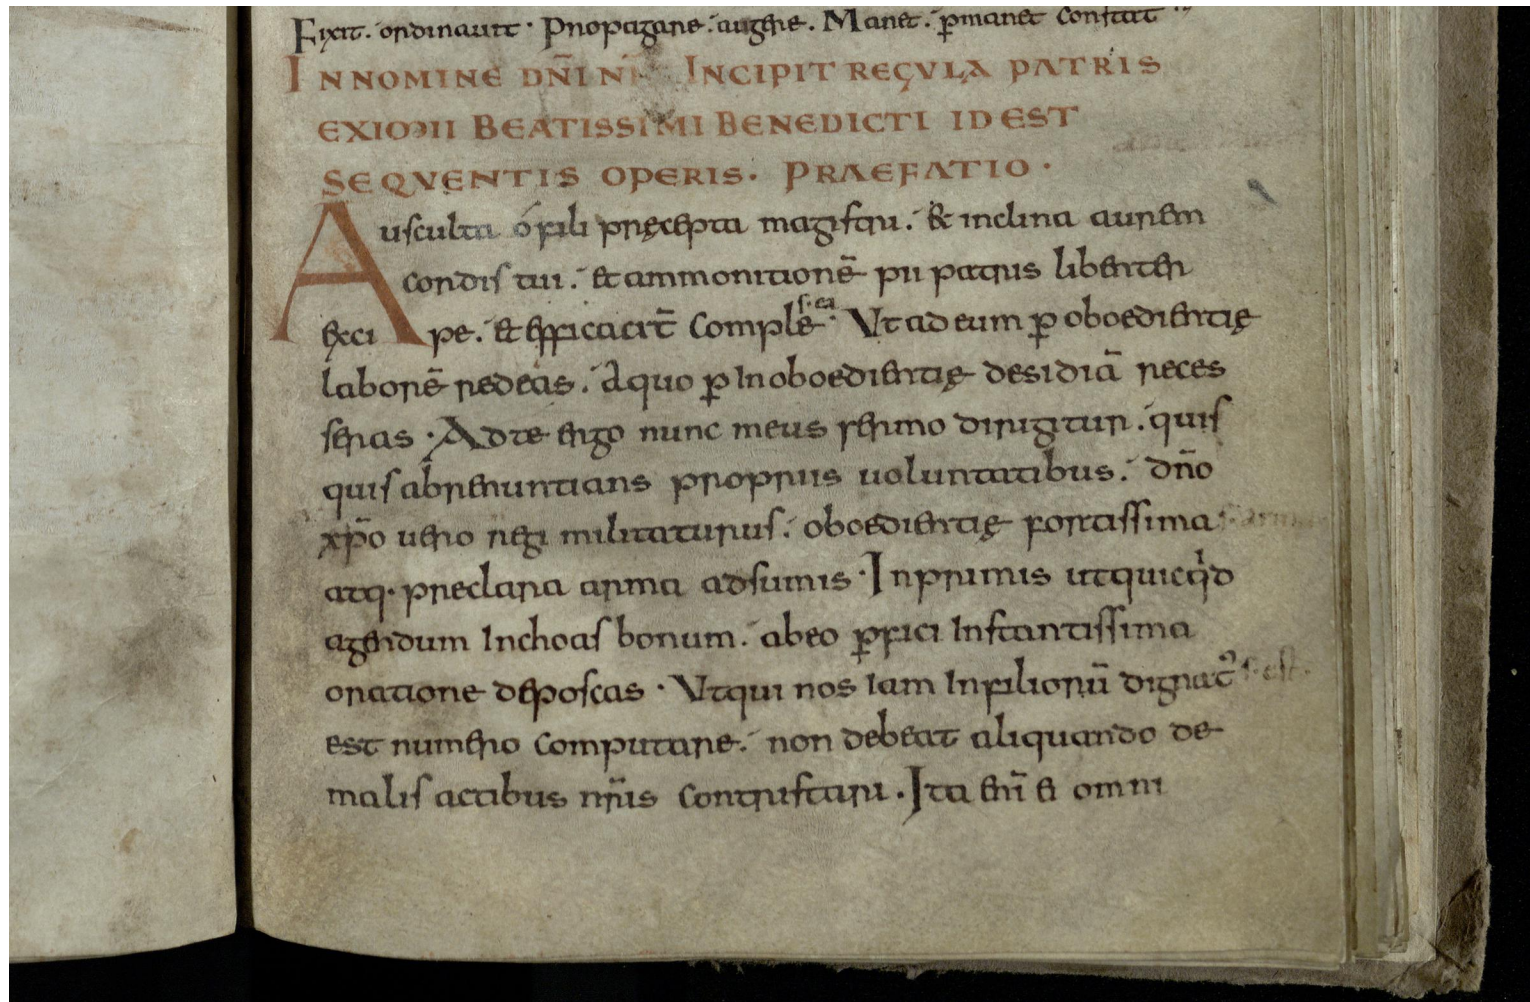 Fixit. ordinauit. Propagare. augere. Manet. p̄manet constat
IN NOMINE DÑI NI INCIPIT REGULA PATRIS
EXIMII BEATISSIMI BENEDICTI ID EST
SEQVENTIS OPERIS. PRAEFATIO.
Ausculta ó fili pręcepta magistri. & inclina aurem
cordis tui. et ammonitionē pii patris libenter
excipe. et efficacit̄ comple s. ea. Vt ad eum ꝑ oboedientię
laborē redeas. A quo ꝑ inoboedientię desidiā neces
seras. Ad te ergo nunc meus sermo dirigitur. quis
quis abrenuntians propriis uoluntatibus. dño
xp̄o uero regi militaturus. oboedientię fortissima
atq. preclara arma adsumis. In primis ut quicq̇d
agendum inchoas bonum. ab eo ꝑfici instantissima
oratione deposcas. Vt qui nos iam in filiorū dignat᾽ s. est.
est numero computare. non debeat aliquando de
malis actibus nr̄is contristari. Ita enī ei omni